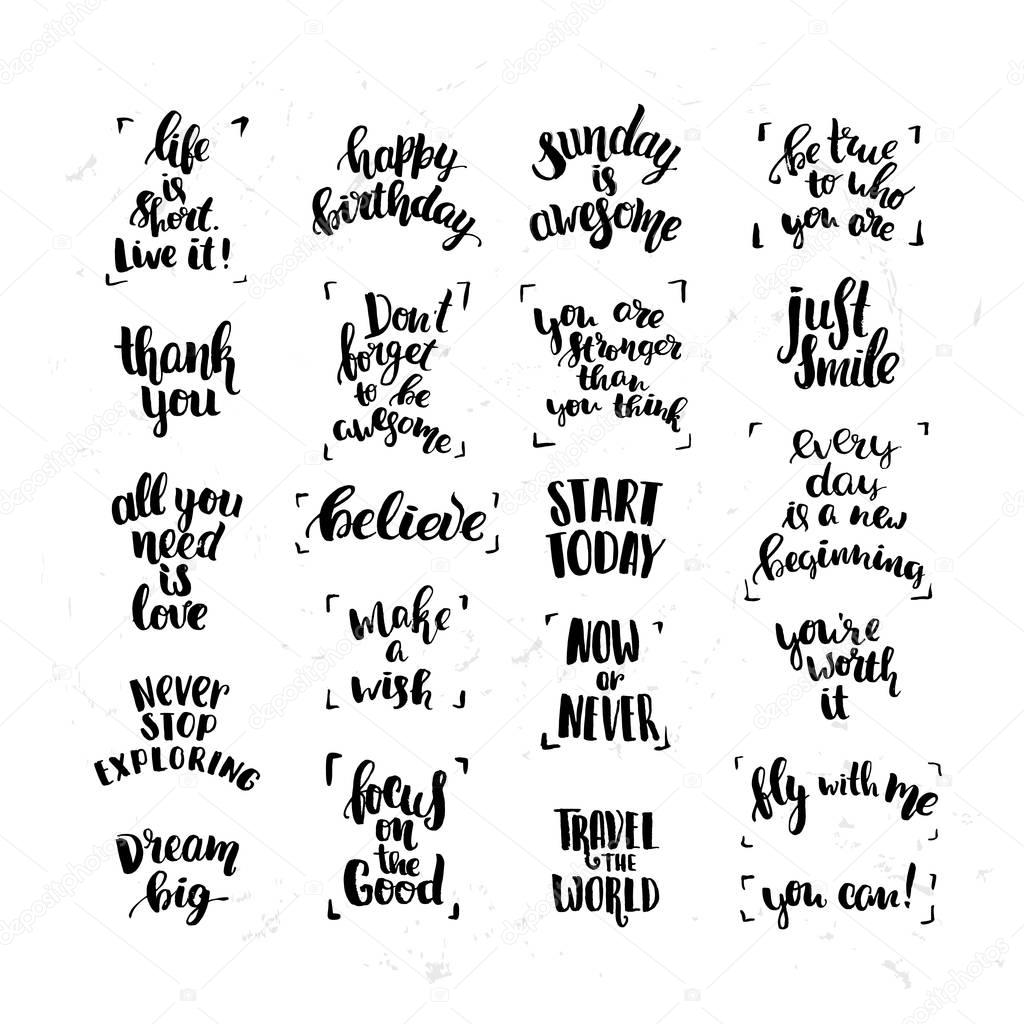 life
is
short.
Live it!
thank
you
all you
need
is
love
NEVER
STOP
EXPLORING
Dream
big
happy
birthday
Don't
forget
to be
awesome
believe
make
a
wish
focus
on
the
Good
sunday
is
awesome
you are
stronger
than
you think
START
TODAY
NOW
or
NEVER
TRAVEL
& THE
WORLD
be true
to who
you are
just
smile
every
day
is a new
beginning
you're
worth
it
fly with me
you can!
depositphotos